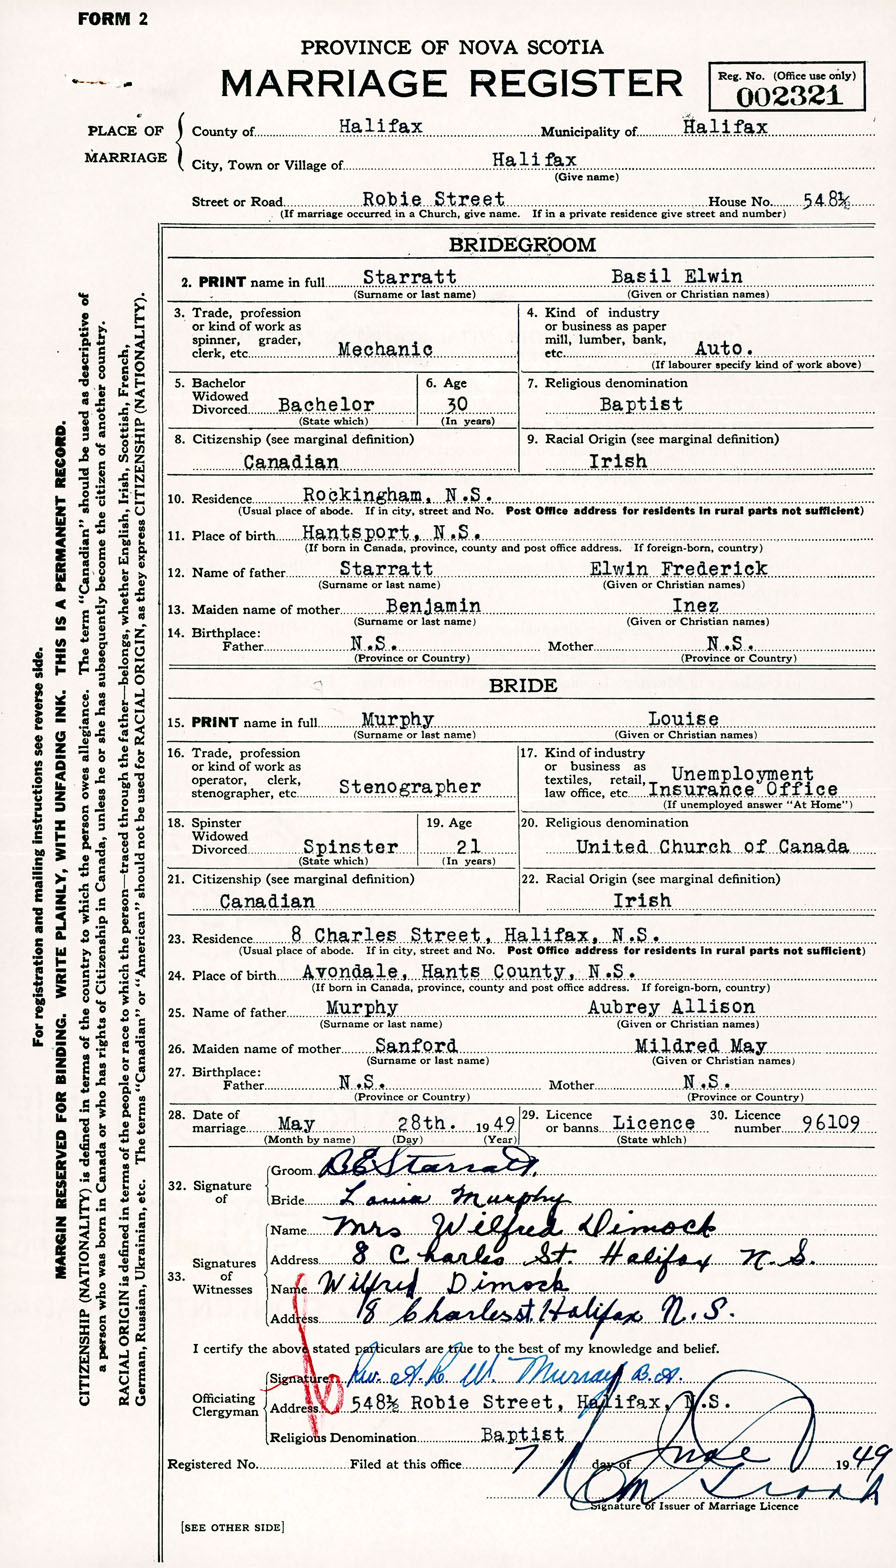 FORM 2
PROVINCE OF NOVA SCOTIA
MARRIAGE REGISTER
Reg. No. (Office use only)
002321
PLACE OF MARRIAGE
County of Halifax Municipality of Halifax
City, Town or Village of Halifax
(Give name)
Street or Road Robie Street House No. 548½
(If marriage occurred in a Church, give name. If in a private residence give street and number)
BRIDEGROOM
2. PRINT name in full Starratt Basil Elwin
(Surname or last name) (Given or Christian names)
3. Trade, profession or kind of work as spinner, grader, clerk, etc. Mechanic
4. Kind of industry or business as paper mill, lumber, bank, etc. Auto.
(If labourer specify kind of work above)
5. Bachelor Widowed Divorced Bachelor
(State which)
6. Age 30
(In years)
7. Religious denomination
Baptist
8. Citizenship (see marginal definition)
Canadian
9. Racial Origin (see marginal definition)
Irish
10. Residence Rockingham, N.S.
(Usual place of abode. If in city, street and No. Post Office address for residents in rural parts not sufficient)
11. Place of birth Hantsport, N.S.
(If born in Canada, province, county and post office address. If foreign-born, country)
12. Name of father Starratt Elwin Frederick
(Surname or last name) (Given or Christian names)
13. Maiden name of mother Benjamin Inez
(Surname or last name) (Given or Christian names)
14. Birthplace:
Father N.S. Mother N.S.
(Province or Country) (Province or Country)
BRIDE
15. PRINT name in full Murphy Louise
(Surname or last name) (Given or Christian names)
16. Trade, profession or kind of work as operator, clerk, stenographer, etc. Stenographer
17. Kind of industry or business as textiles, retail, law office, etc. Unemployment Insurance Office
(If unemployed answer "At Home")
18. Spinster Widowed Divorced Spinster
(State which)
19. Age 21
(In years)
20. Religious denomination
United Church of Canada
21. Citizenship (see marginal definition)
Canadian
22. Racial Origin (see marginal definition)
Irish
23. Residence 8 Charles Street, Halifax, N.S.
(Usual place of abode. If in city, street and No. Post Office address for residents in rural parts not sufficient)
24. Place of birth Avondale, Hants County, N.S.
(If born in Canada, province, county and post office address. If foreign-born, country)
25. Name of father Murphy Aubrey Allison
(Surname or last name) (Given or Christian names)
26. Maiden name of mother Sanford Mildred May
(Surname or last name) (Given or Christian names)
27. Birthplace:
Father N.S. Mother N.S.
(Province or Country) (Province or Country)
28. Date of marriage May 28th. 1949
(Month by name) (Day) (Year)
29. Licence or banns Licence
(State which)
30. Licence number 96109
32. Signature of
Groom B E Starratt
Bride Louise Murphy
33. Signatures of Witnesses
Name Mrs Wilfred Dimock
Address 8 Charles St. Halifax N.S.
Name Wilfred Dimock
Address 8 Charles st. Halifax N.S.
I certify the above stated particulars are true to the best of my knowledge and belief.
Officiating Clergyman
Signature Rev. A. R. W. Murray B.A.
Address 548½ Robie Street, Halifax, N.S.
Religious Denomination Baptist
Registered No. Filed at this office 7 day of June 1949
Signature of Issuer of Marriage Licence
[SEE OTHER SIDE]
For registration and mailing instructions see reverse side.
MARGIN RESERVED FOR BINDING. WRITE PLAINLY, WITH UNFADING INK. THIS IS A PERMANENT RECORD.
CITIZENSHIP (NATIONALITY) is defined in terms of the country to which the person owes allegiance. The term "Canadian" should be used as descriptive of
a person who was born in Canada or who has rights of Citizenship in Canada, unless he or she has subsequently become the citizen of another country.
RACIAL ORIGIN is defined in terms of the people or race to which the person—traced through the father—belongs, whether English, Irish, Scottish, French,
German, Russian, Ukrainian, etc. The terms "Canadian" or "American" should not be used for RACIAL ORIGIN, as they express CITIZENSHIP (NATIONALITY).